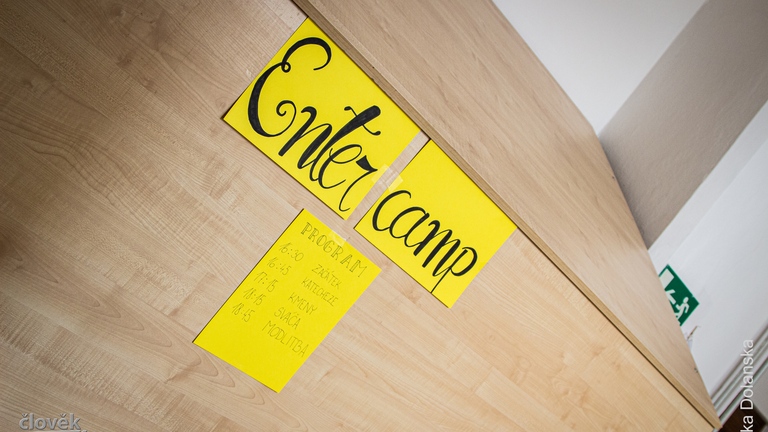 Enter
camp
PROGRAM
16:30 ZAČÁTEK
16:45 KATECHEZE
17:15 KMENY
18:15 SVAČA
18:45 MODLITBA
člověk
ka Dolanská